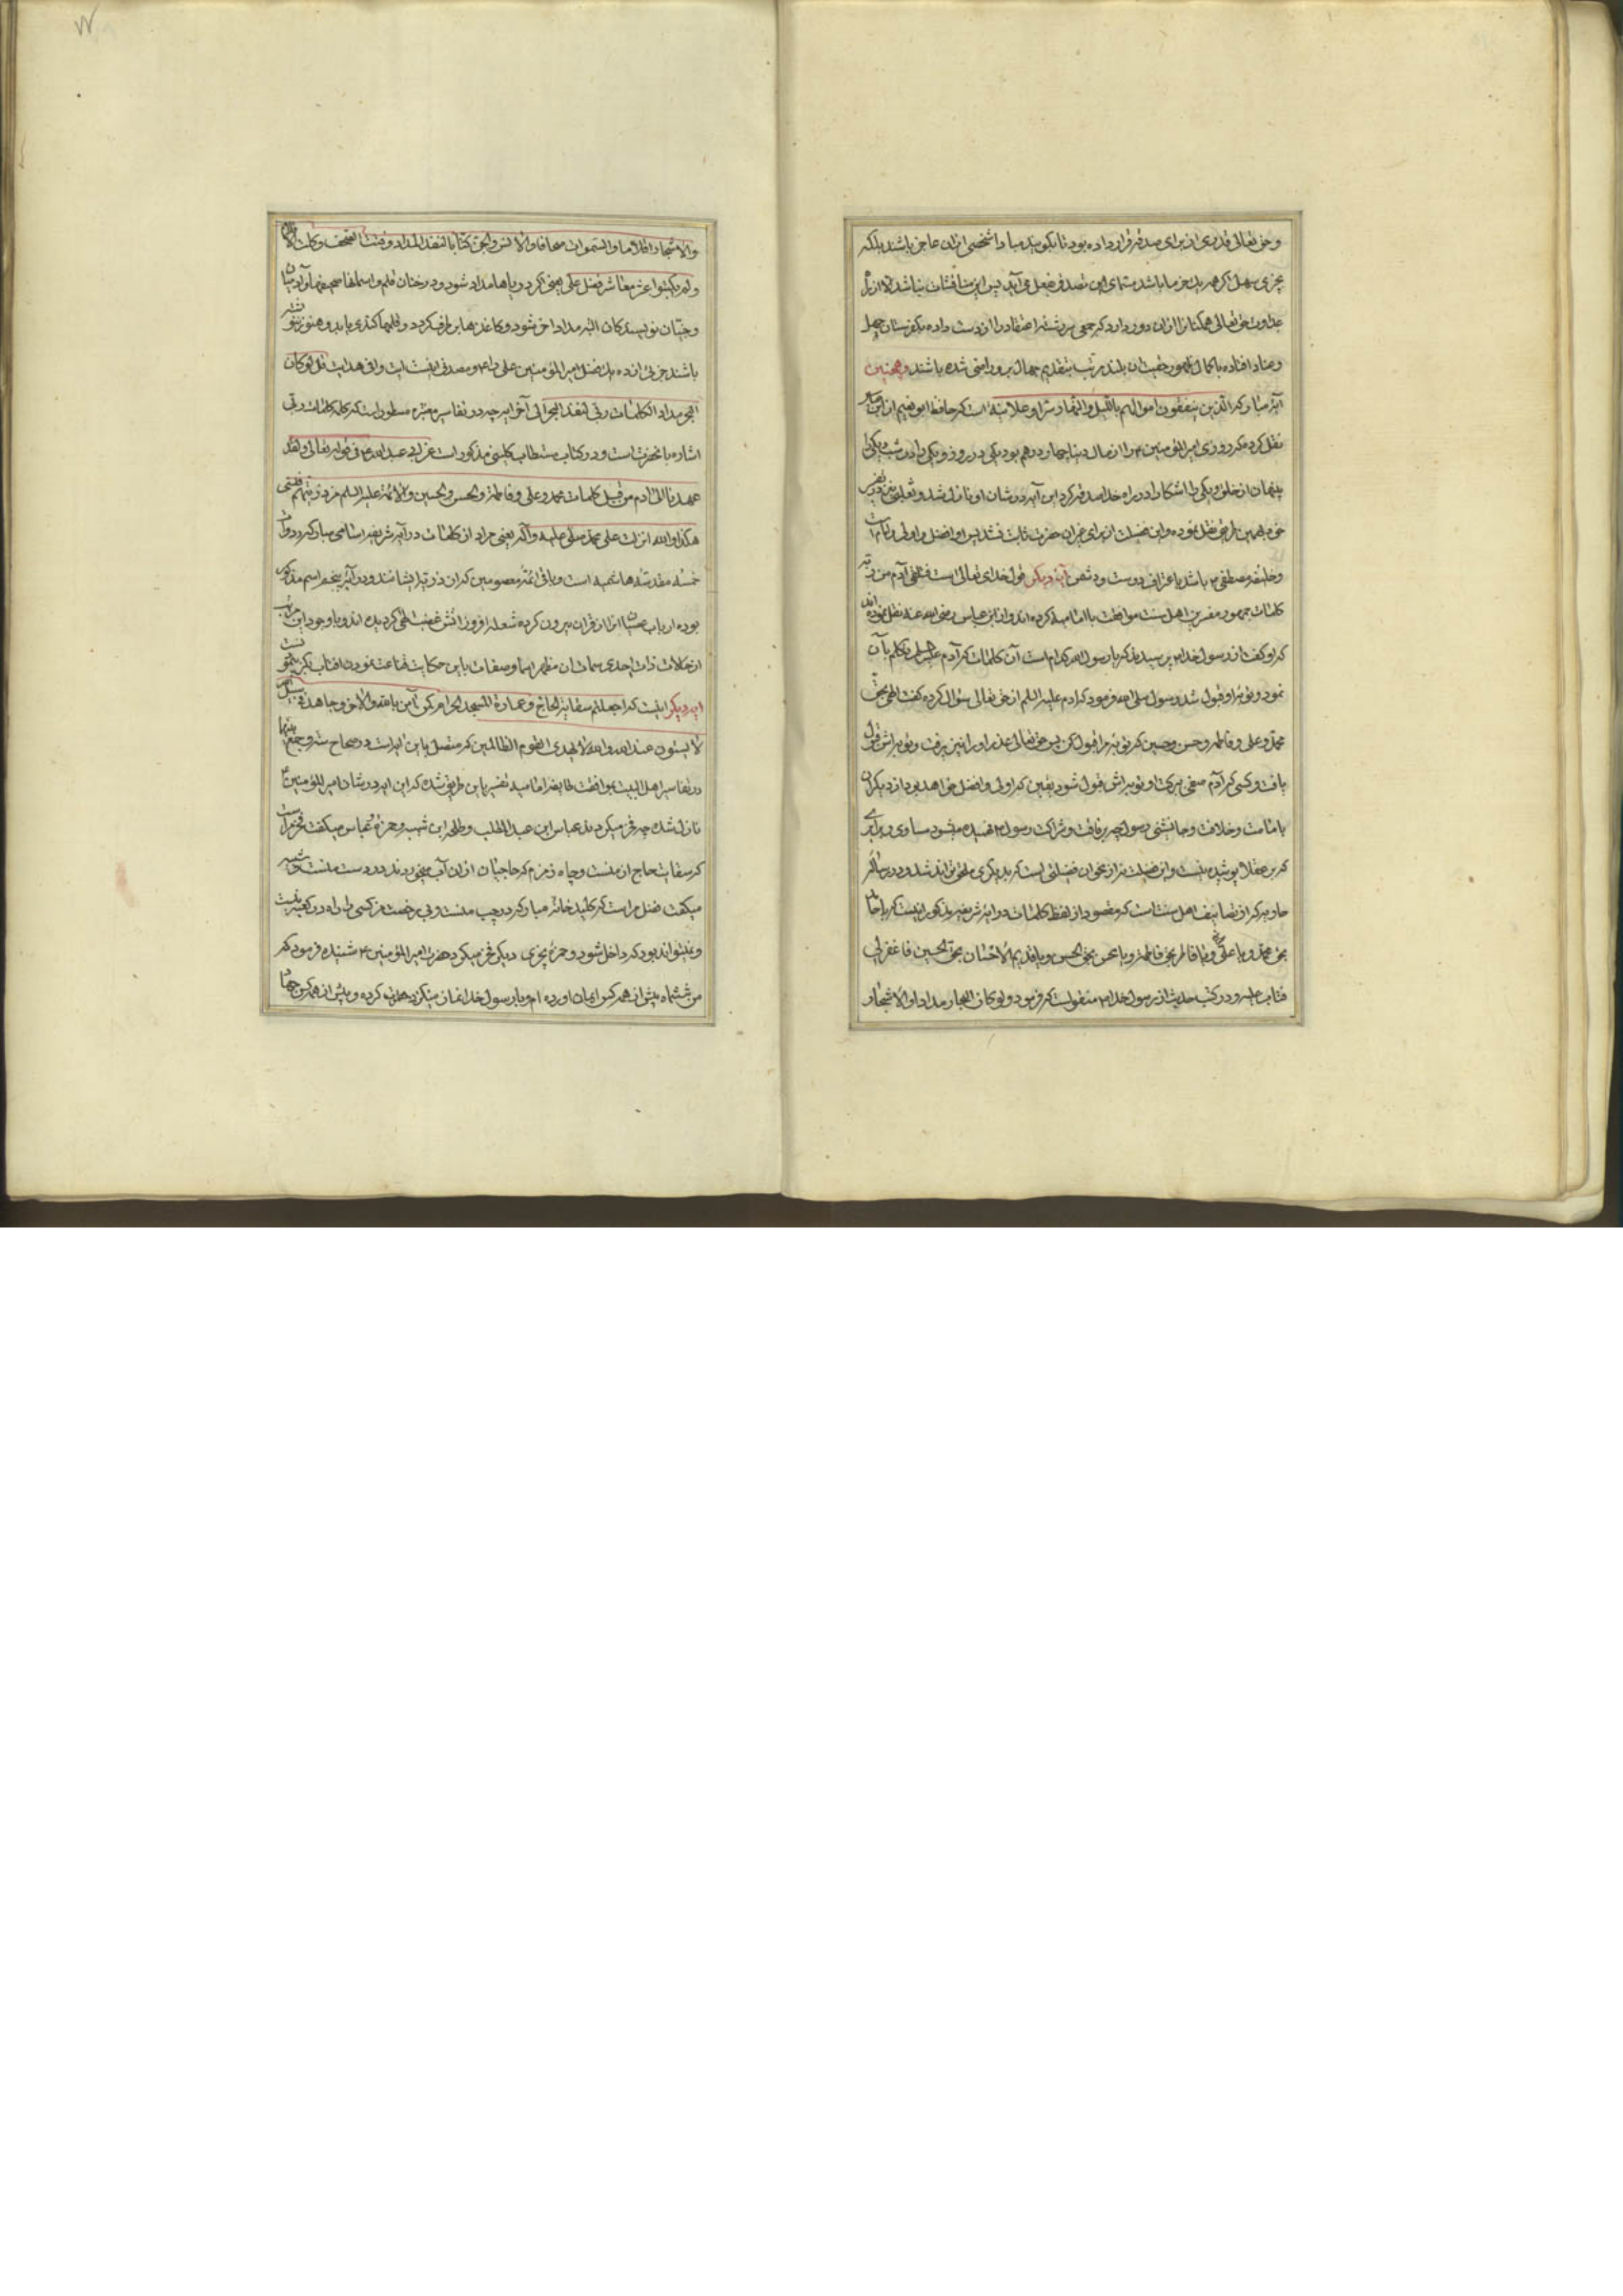 وحق تعالی قدری از برای صدقه قرار داده بود تا بگویند مبادا شخصی از ان عاجز باشد بلکه
بجزی سهل اگر همه یک خرما باشد مسمای این تصدق بفعل می آید پس این مناقشات نباشد الا از راه
عداوت حق تعالی همکنانرا از ان دور دارد که جمعی سررشته اعتقاد را از دست داده بکفرستان جهل
وعناد افتاده با کمال ظهور حقیت ان بلند مرتبه بتقدیم جهال برو راضی شده باشند وهمچنین
آیه مبارکه الذین ینفقون اموالهم باللیل والنهار سرا وعلانیة است که حافظ ابو نعیم از ابن عباس
نقل کرده که روزی امیر المؤمنین ۴ را از مال دنیا چهار درهم بود یکی در روز ویکی را در شب ویکی را
پنهان از خلق ویکی را اشکارا در راه خدا صدقه کرد این آیه در شان او نازل شد وثعلبی نیز در تفسیر
خود همین طریق نقل نموده واین فضیلت از برای غیر ان حضرت ثابت نشد پس او افضل واولی وامام است
وخلیفه مصطفی ۴ باشد باعتراف دوست ودشمن آیه دیکر قول خدای تعالی است فتلقی آدم من ربه
کلمات جمهور مفسرین اهل سنت موافقت با امامیه کرده اند واز ابن عباس رضی الله عنه نقل نموده اند
که او گفت از رسول خدا ۴ پرسیدند که یا رسول الله کدام است آن کلمات که آدم علیه السلم تکلم بآن
نمود وتوبه او قبول شد رسول صلی الله فرمود که ادم علیه السلم از حق تعالی سؤال کرده گفت الهی بحق
محمد وعلی وفاطمه وحسن وحسین که توبه مرا قبول کن پس حق تعالی عذر او را پذیرفت وتوبه اش قبول
یافت وکسی که آدم صفی ببرکت او توبه اش قبول شود یقین که اولی وافضل خواهد بود از دیکران
بامامت وخلافت وجانشینی رسول چه برفاقت وشراکت رسول ۴ فهمیده میشود مساوی وبرابری
که بر عقلا پوشیده نیست واین فضیلت نیز از عنوان فضیلتی است که بدیگری ملحق نتواند شد ودر رساله
حاویه که از تصانیف اهل سنت است که مقصود از لفظ کلمات در ایه شریفه مذکوره اینست که یا حامد
بحق محمد ویا عالی بحق علی ویا فاطر بحق فاطمة ویا محسن بحق الحسن ویا قدیم الاحسان بحق الحسین فاغفر لی
فتاب علیه ودر کتب حدیث از رسول خدا ۴ منقولست که فرمود ولو کان البحار مدادا والاشجار
والاشجار اقلاما والسموات صحافا والانس والجن کتابا لنفد المداد وفنیت الصحف وکلت الاقلام
ولم یکتبوا عشر معشار فضل علی یعنی اگر دریاها مداد شود ودرختان قلم واسمانها صحیفها وآدمیان
وجنیان نویسندکان البته مداد اخر شود وکاغذها بر طرف کردد وقلمها کندی یابد وهنوز ننوشته
باشند جزئی از ده یک فضل امیر المؤمنین علی را ۴ ومصدق اینست ایت وافی هدایت قل لو کان
البحر مدادا لکلمات ربی لنفد البحر الی آخر ایه چه در تفاسیر معتبره مسطور است که کله کلمات ربی
اشاره بانحضرت است ودر کتاب مستطاب کلینی مذکور است عن ابی عبد الله ۴ فی قوله تعالی ولقد
عهدنا الی ادم من قبل کلمات محمد وعلی وفاطمة والحسن والحسین والائمة علیهم السلم من ذریتهم فنسی
هکذا والله انزلت علی محمد صلی الله علیه وآله یعنی مراد از کلمات در آیه شریفه اسامی مبارکه
خمسه مقدسه هاشمیه است وباقی ائمه معصومین که از ان ذریه ایشانند ودر آیه پنجم اسم مذکور
بوده ارباب عصیان انرا از قران بیرون کرده شعله افروز اتش غضب الهی کردیده اند وباوجود این مراتب
از حالات ذات احدی سمات ان مظهر اسما وصفات باین حکایت قناعت نمودن افتاب بکز پیمودنست
ایه دیکر اینست که اجعلتم سقایة الحاج وعمارة المسجد الحرام کمن آمن بالله والیوم الاخر وجاهد فی سبیل الله
لا یستون عند الله والله لا یهدی القوم الظالمین که متصل باین ایه است در صحاح سته وجمع بینهما
در تفاسیر اهل البیت بموافقت طایفه امامیه تفسیر باین طریق شده که این ایه در شان امیر المؤمنین ۴
نازل شده چه فخر میکردند عباس ابن عبد المطلب وطلحه ابن شیبه وحمزه عباس میکفت فخر مراست
که سقایت حاج از منست وچاه زمزم که حاجیان از ان آب میخورند در دست منست وشیبه
میکفت فضل مراست که کلید خانه مبارکه در جیب منست وبی رخصت من کسی را راه در کعبه نیست
ونمیتواند بود که داخل شود وحمزه بچیزی دیکر فخر میکرد حضرت امیر المؤمنین ۴ شنیده فرمود که
من ششماه پیش از همه کس ایمان اورده ام وبا رسول خدا نماز میگزارده وپیش از همه کس جهاد